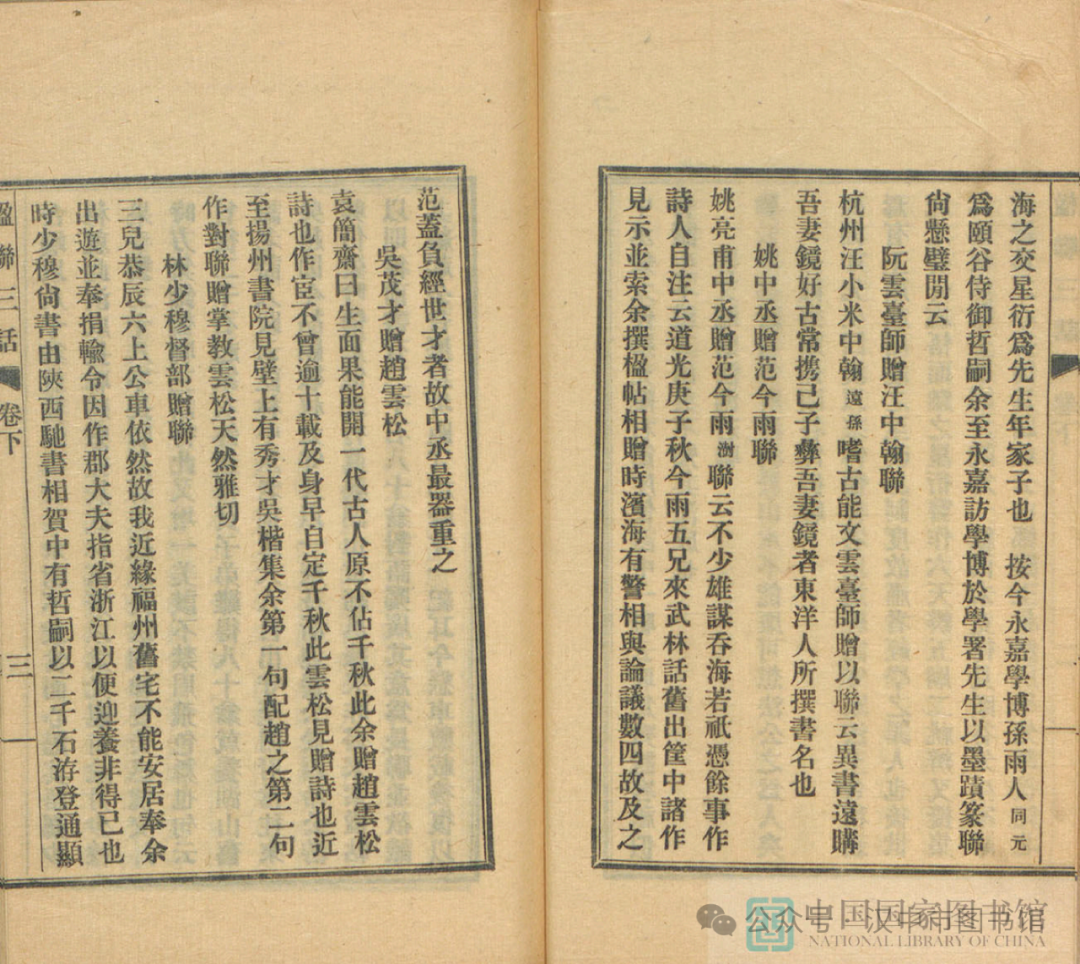 海之交星衍爲先生年家子也　按今永嘉學博孫雨人同元
爲頤谷侍御哲嗣余至永嘉訪學博於學署先生以墨蹟篆聯
尙懸壁閒云
阮雲臺師贈汪中翰聯
杭州汪小米中翰遠孫嗜古能文雲臺師贈以聯云異書遠購
吾妻鏡好古常攜己子彝吾妻鏡者東洋人所撰書名也
姚中丞贈范今雨聯
姚亮甫中丞贈范今雨澍聯云不少雄謀吞海若祇憑餘事作
詩人自注云道光庚子秋今雨五兄來武林話舊出筐中諸作
見示並索余撰楹帖相贈時濱海有警相與論議數四故及之
范蓋負經世才者故中丞最器重之
吳茂才贈趙雲松
袁簡齋曰生面果能開一代古人原不佔千秋此余贈趙雲松
詩也作宦不曾逾十載及身早自定千秋此雲松見贈詩也近
至揚州書院見壁上有秀才吳楷集余第一句配趙之第二句
作對聯贈掌教雲松天然雅切
林少穆督部贈聯
三兒恭辰六上公車依然故我近緣福州舊宅不能安居奉余
出遊並奉捐輸令因作郡大夫指省浙江以便迎養非得已也
時少穆尙書由陝西馳書相賀中有哲嗣以二千石洊登通顯
楹聯三話
卷下
三
中国国家图书馆
NATIONAL LIBRARY OF CHINA
公众号·汉中市图书馆